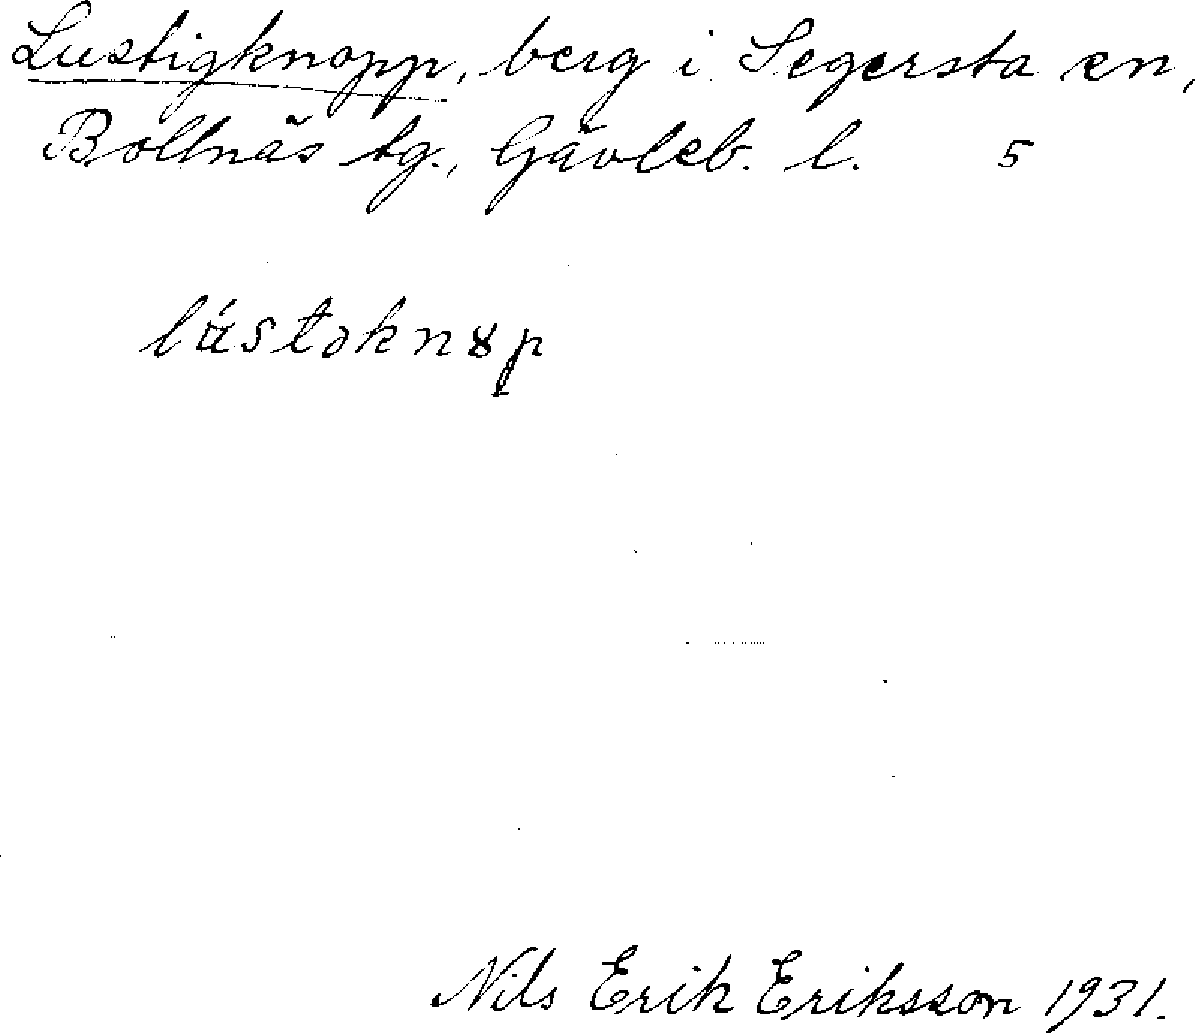 Lustigknopp, berg i Segersta sn,
Bollnäs tg., Gävleb. l. 5
lústəknɤp
Nils Erik Eriksson 1931.